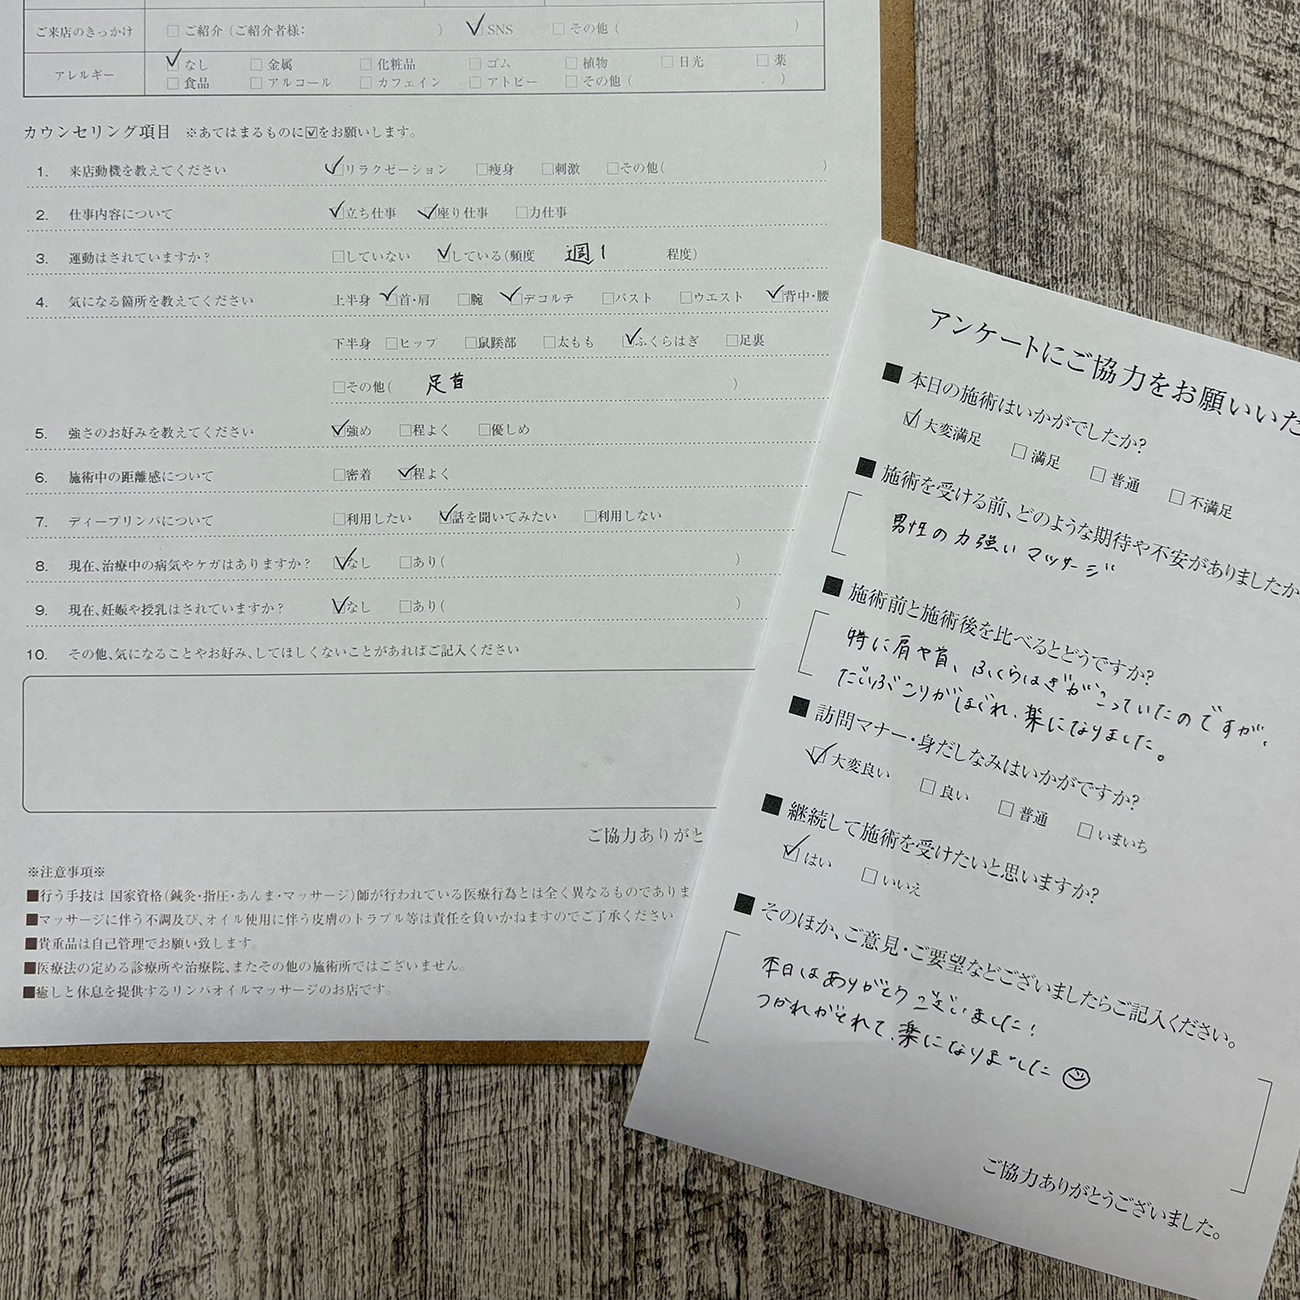 ご来店のきっかけ □ご紹介（ご紹介者様: ） ☑SNS □その他（ ）
アレルギー ☑なし □金属 □化粧品 □ゴム □植物 □日光 □薬
□食品 □アルコール □カフェイン □アトピー □その他（ ）
カウンセリング項目 ※あてはまるものに☑をお願いします。
1. 来店動機を教えてください ☑リラクゼーション □痩身 □刺激 □その他( )
2. 仕事内容について ☑立ち仕事 ☑座り仕事 □力仕事
3. 運動はされていますか? □していない ☑している(頻度 週1 程度)
4. 気になる箇所を教えてください 上半身 ☑首・肩 □腕 ☑デコルテ □バスト □ウエスト ☑背中・腰
下半身 □ヒップ □鼠蹊部 □太もも ☑ふくらはぎ □足裏
□その他( 足首 )
5. 強さのお好みを教えてください ☑強め □程よく □優しめ
6. 施術中の距離感について □密着 ☑程よく
7. ディープリンパについて □利用したい ☑話を聞いてみたい □利用しない
8. 現在、治療中の病気やケガはありますか? ☑なし □あり( )
9. 現在、妊娠や授乳はされていますか? ☑なし □あり( )
10. その他、気になることやお好み、してほしくないことがあればご記入ください
ご協力ありがと
※注意事項※
■行う手技は 国家資格(鍼灸・指圧・あんま・マッサージ)師が行われている医療行為とは全く異なるものでありま
■マッサージに伴う不調及び、オイル使用に伴う皮膚のトラブル等は責任を負いかねますのでご了承ください
■貴重品は自己管理でお願い致します。
■医療法の定める診療所や治療院、またその他の施術所ではございません。
■癒しと休息を提供するリンパオイルマッサージのお店です。
アンケートにご協力をお願いいた
■ 本日の施術はいかがでしたか?
☑大変満足 □満足 □普通 □不満足
■ 施術を受ける前、どのような期待や不安がありましたか
男性の力強いマッサージ
■ 施術前と施術後を比べるとどうですか?
特に肩や首、ふくらはぎがこっていたのですが、
だいぶこりがほぐれ、楽になりました。
■ 訪問マナー・身だしなみはいかがですか?
☑大変良い □良い □普通 □いまいち
■ 継続して施術を受けたいと思いますか?
☑はい □いいえ
■ そのほか、ご意見・ご要望などございましたらご記入ください。
本日はありがとうございました!
つかれがとれて、楽になりました☺
ご協力ありがとうございました。